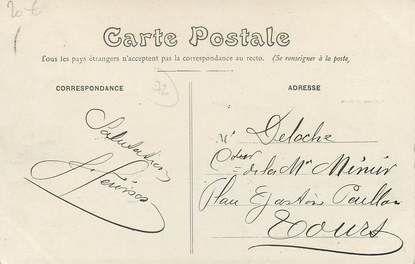 20 €
Carte Postale
Tous les pays étrangers n'acceptent pas la correspondance au recto. (Se renseigner à la poste,
CORRESPONDANCE
32
ADRESSE
Salutations
Mr Deloche
de la Mn Ménier
Gaston
Tours